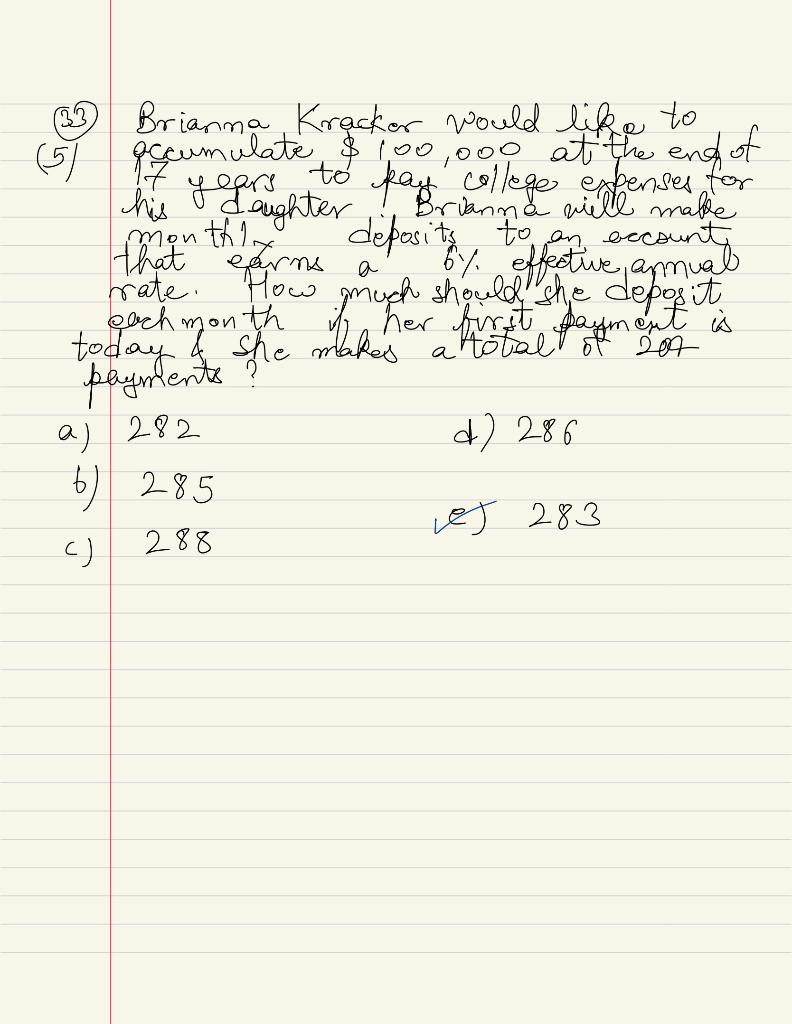 33 Brianna Kracker would like to
(5) accumulate $ 100,000 at the end of
17 years to pay college expenses for
his daughter. Brianna will make
monthly deposits to an account
that earns a 6% effective annual
rate. How much should she deposit
each month if her first payment is
today & she makes a total of 204
payments?
a) 282 d) 286
b) 285
e) 283
c) 288